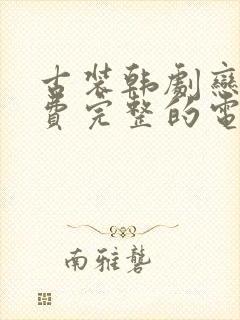 古装韩剧戀
费完整的電
南雅砻